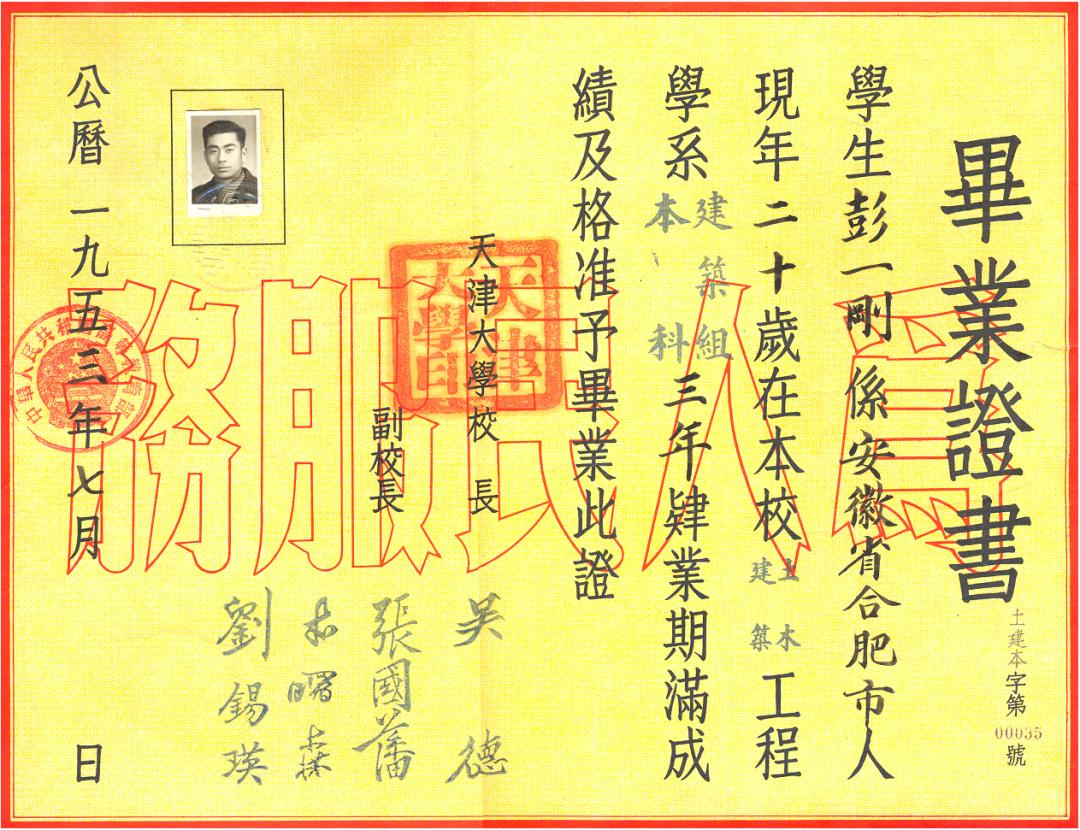 畢業證書
土建本字第00035號
學生彭一剛係安徽省合肥市人
現年二十歲在本校土木建築工程
學系建築組本科三年肄業期滿成
績及格准予畢業此證
天津大學校長
吳德
副校長
張國藩
李曙森
劉錫瑛
公曆一九五三年七月 日
為人民服務
天津大學印